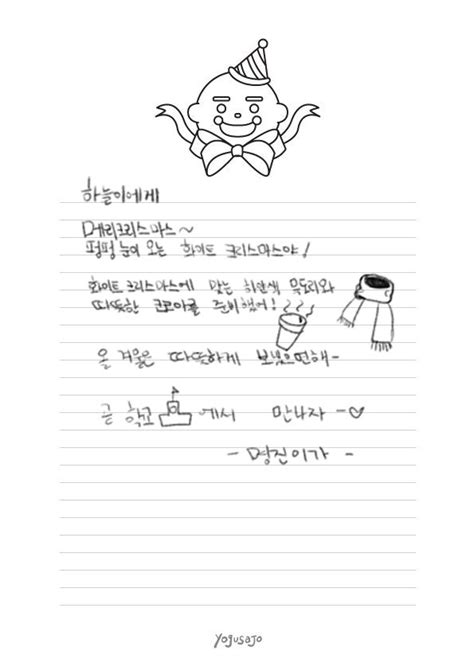 하늘이에게
메리크리스마스~
펑펑 눈이 오는 화이트 크리스마스야!
화이트 크리스마스에 맞는 하얀색 목도리와
따뜻한 코코아를 준비했어!
올 겨울은 따뜻하게 보냈으면해-
곧 학교에서 만나자-♡
- 명진이가 -
yogusajo